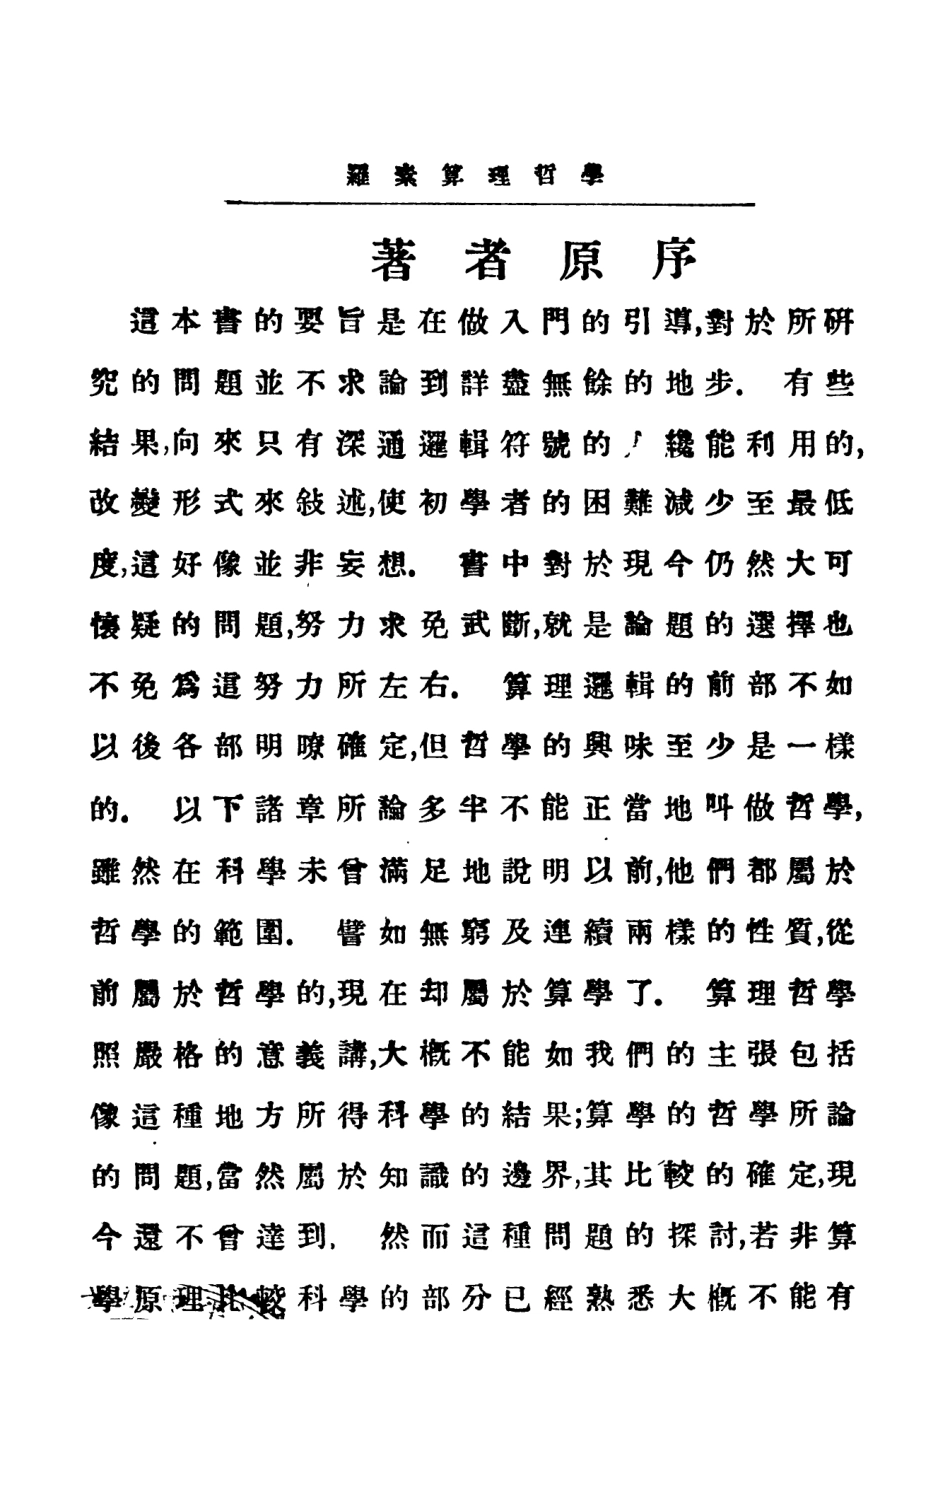 羅素算理哲學
著者原序
這本書的要旨是在做入門的引導,對於所研
究的問題並不求論到詳盡無餘的地步. 有些
結果,向來只有深通邏輯符號的 纔能利用的,
改變形式來敍述,使初學者的困難減少至最低
度,這好像並非妄想. 書中對於現今仍然大可
懷疑的問題,努力求免武斷,就是論題的選擇也
不免爲這努力所左右. 算理邏輯的前部不如
以後各部明暸確定,但哲學的興味至少是一樣
的. 以下諸章所論多半不能正當地叫做哲學,
雖然在科學未曾滿足地說明以前,他們都屬於
哲學的範圍. 譬如無窮及連續兩樣的性質,從
前屬於哲學的,現在却屬於算學了. 算理哲學
照嚴格的意義講,大概不能如我們的主張包括
像這種地方所得科學的結果;算學的哲學所論
的問題,當然屬於知識的邊界,其比較的確定,現
今還不曾達到. 然而這種問題的探討,若非算
學原理比較科學的部分已經熟悉大概不能有